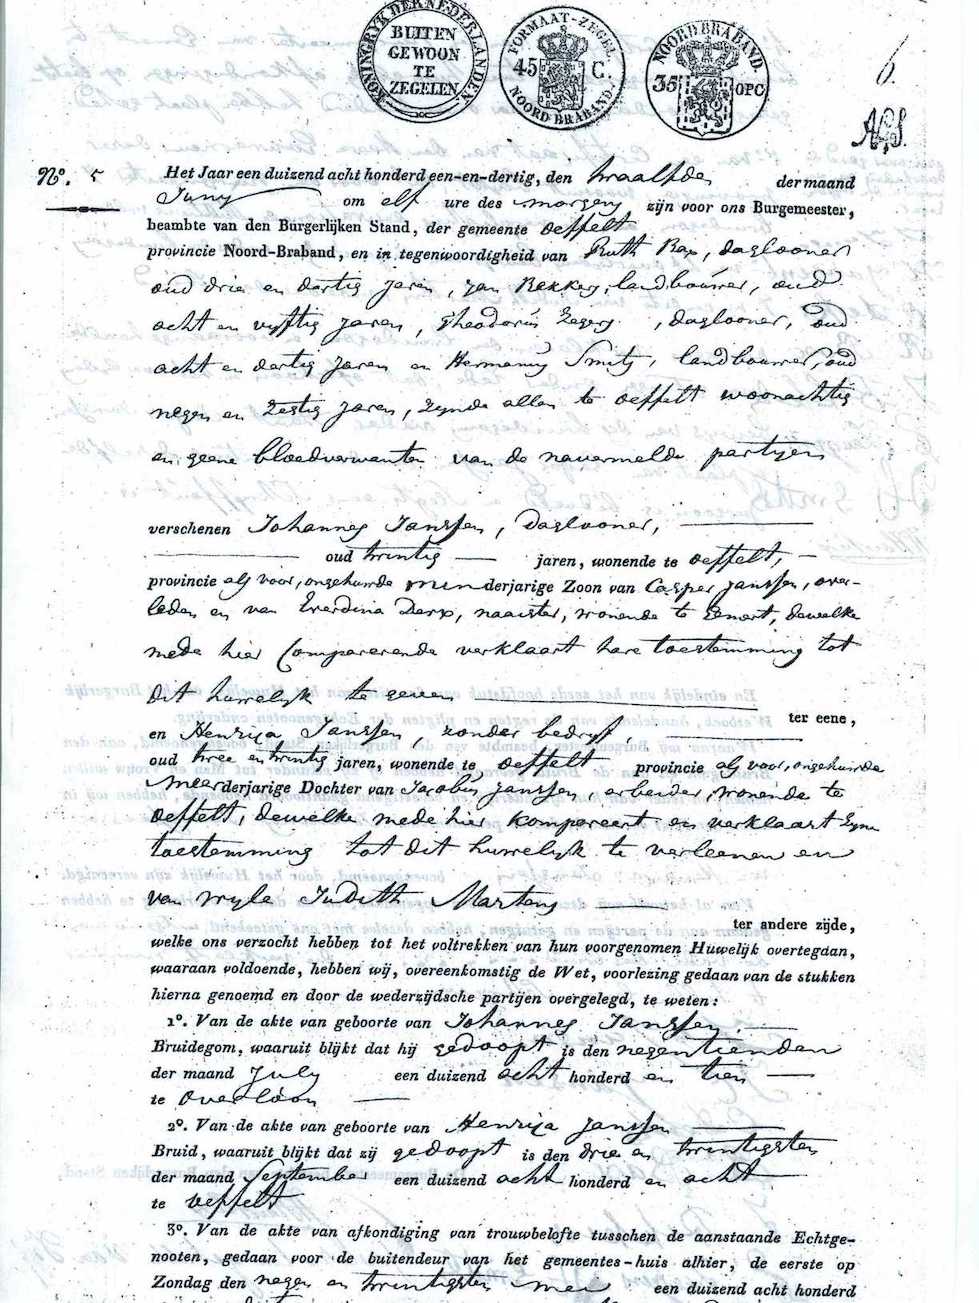 KONINGRYK DER NEDERLANDEN.
BUITEN
GEWOON
TE
ZEGELEN
FORMAAT-ZEGEL
45 C.
NOORD BRABAND.
NOORDBRABAND.
35 OPC
6.
N°. 5
Het Jaar een duizend acht honderd een-en-dertig, den twaalfden der maand
Juny om elf ure des morgens zijn voor ons Burgemeester,
beambte van den Burgerlijken Stand, der gemeente Oeffelt
provincie Noord-Braband, en in tegenwoordigheid van Ruth Bax, daglooner
oud drie en dartig jaren, Jan Bekkers, landbouwer, oud
acht en vyftig jaren, Theodorus Zegers, daglooner, oud
acht en dartig jaren en Hermanus Smits, landbouwer, oud
negen en zestig jaren, zynde allen te Oeffelt woonachtig
en geene bloedverwanten van de navermelde partyen
verschenen Johannes Janssen, daglooner,
oud twintig jaren, wonende te Oeffelt,
provincie als voor, ongehuwde minderjarige Zoon van Casper Janssen, over-
leden en van Everdina Derx, naaister, wonende te Gemert, dewelke
mede hier Comparerende verklaart hare toestemming tot
dit huwelyk te geven ter eene,
en Henrica Janssen, zonder bedryf,
oud twee en twintig jaren, wonende te Oeffelt provincie als voor, ongehuwde
meerderjarige Dochter van Jacobus Janssen, arbeider, wonende te
Oeffelt, dewelke mede hier kompareert en verklaart zyne
toestemming tot dit huwelyk te verleenen en
van wyle Judith Martens ter andere zijde,
welke ons verzocht hebben tot het voltrekken van hun voorgenomen Huwelijk overtegaan,
waaraan voldoende, hebben wij, overeenkomstig de Wet, voorlezing gedaan van de stukken
hierna genoemd en door de wederzijdsche partijen overgelegd, te weten:
1°. Van de akte van geboorte van Johannes Janssen,
Bruidegom, waaruit blijkt dat hij gedoopt is den negentienden
der maand July een duizend acht honderd en tien
te Overloon
2°. Van de akte van geboorte van Henrica Janssen
Bruid, waaruit blijkt dat zij gedoopt is den drie en twintigsten
der maand September een duizend acht honderd en acht
te Oeffelt
3°. Van de akte van afkondiging van trouwbelofte tusschen de aanstaande Echtge-
nooten, gedaan voor de buitendeur van het gemeentes-huis alhier, de eerste op
Zondag den negen en twintigsten mei een duizend acht honderd